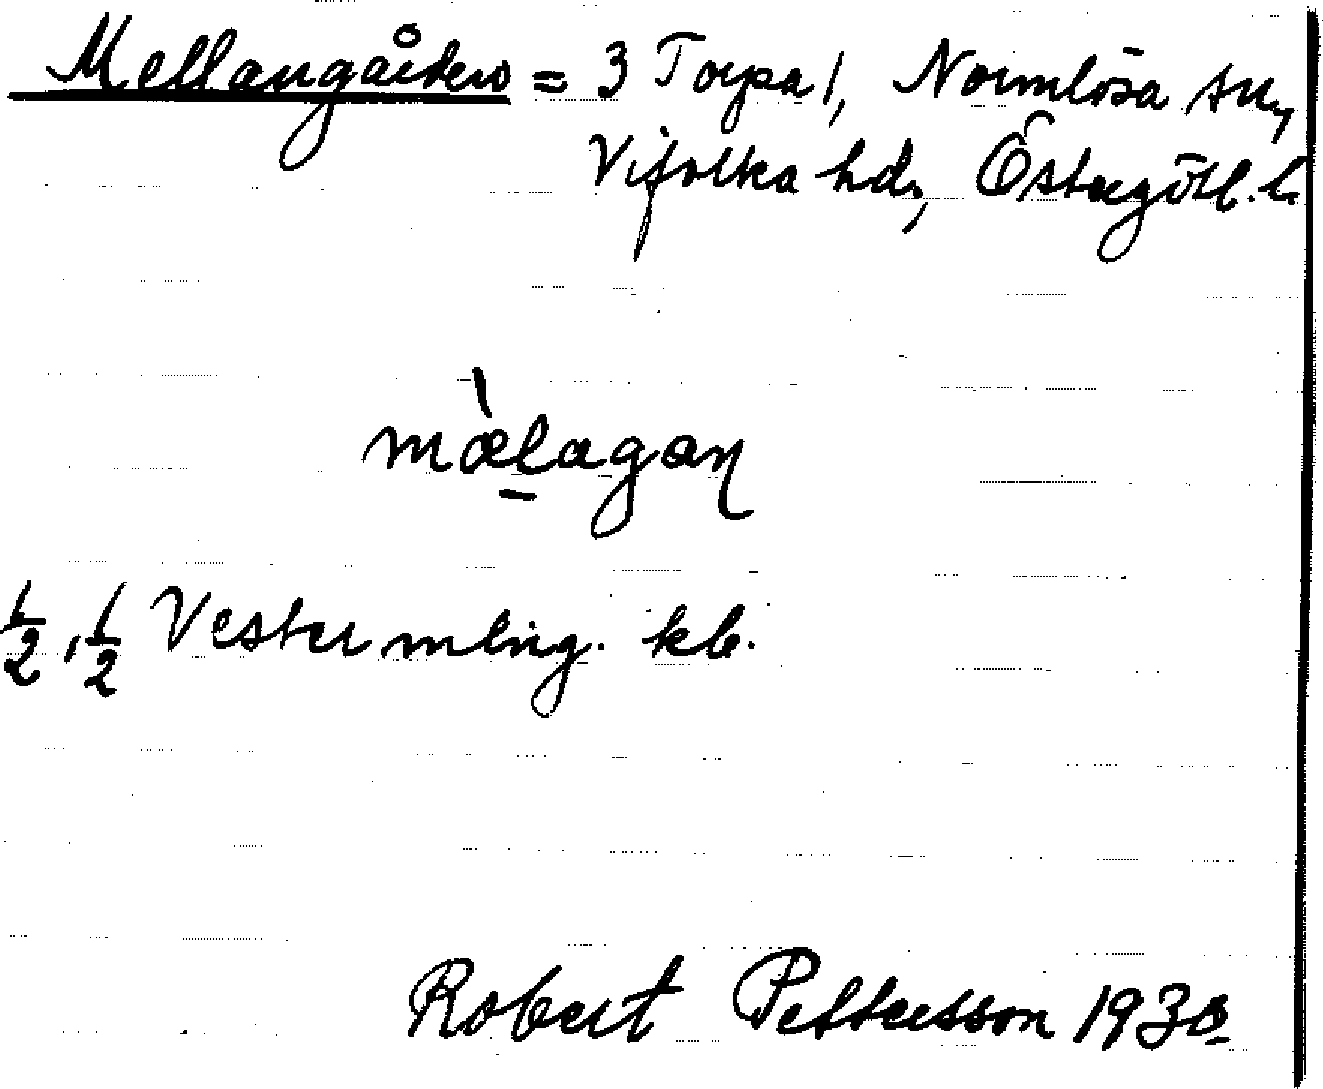 Mellangården = 3 Torpa 1, Normlösa sn,
Vifolka hd, Östergötl. l.
mæ̀lagaɳ
1/2, 1/2 Vester mlng. kb.
Robert Pettersson 1930